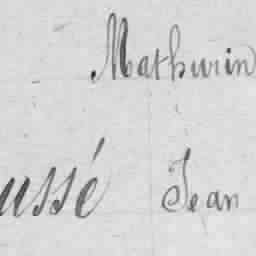 Mathurin
ussé Jean